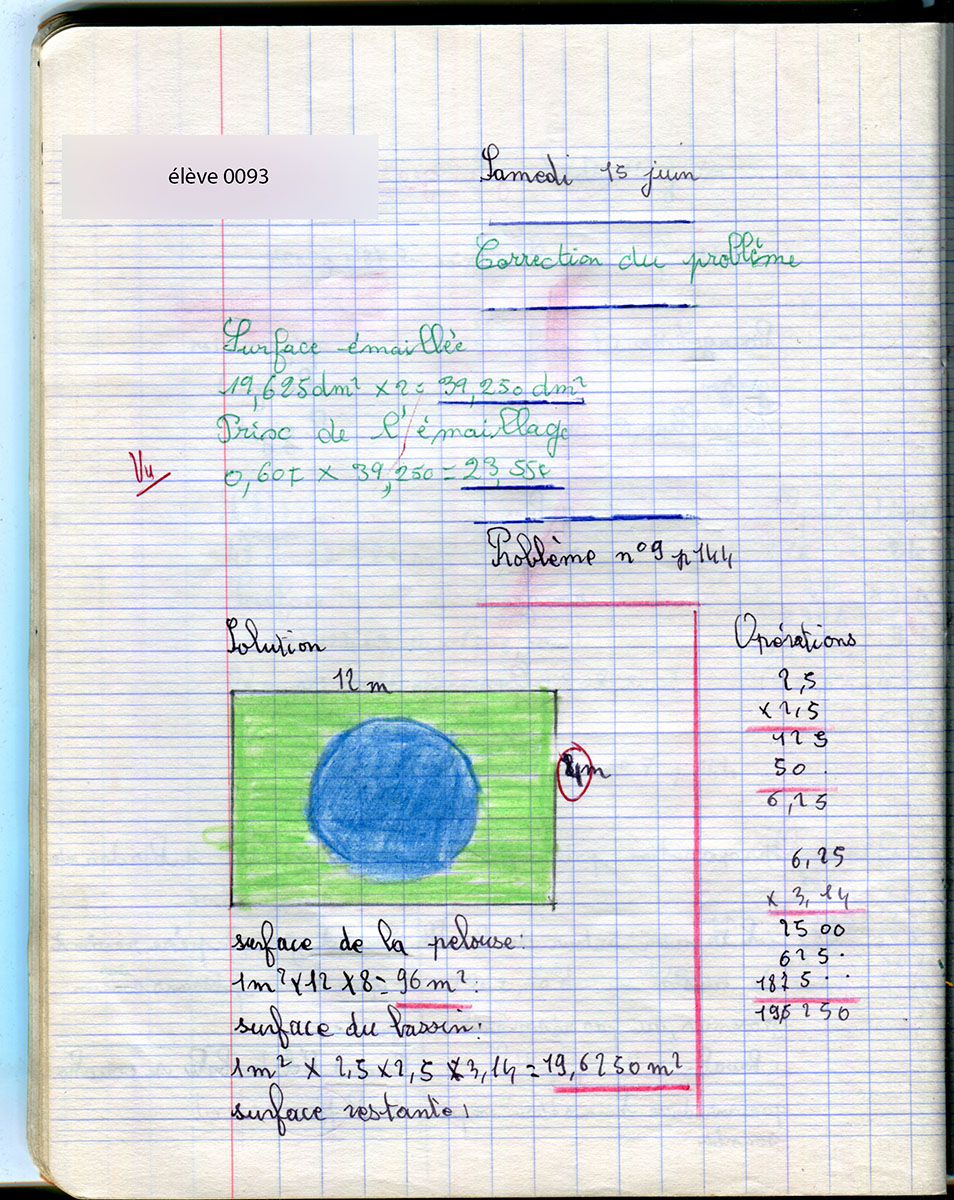 élève 0093
Samedi 15 juin
Correction du problème
Surface émaillée
19,625 dm² × 2 = 39,250 dm²
Prix de l'émaillage
Vu
0,60F × 39,250 = 23,55
Problème n°9 p 144
Solution
Opérations
12 m
2,5
× 2,5
125
50 .
6,25
6,25
× 3,14
25 00
625 .
1875 . .
surface de la pelouse :
1m² × 12 × 8 = 96 m².
surface du bassin :
1m² × 2,5 × 2,5 × 3,14 = 19,6250 m²
surface restante :